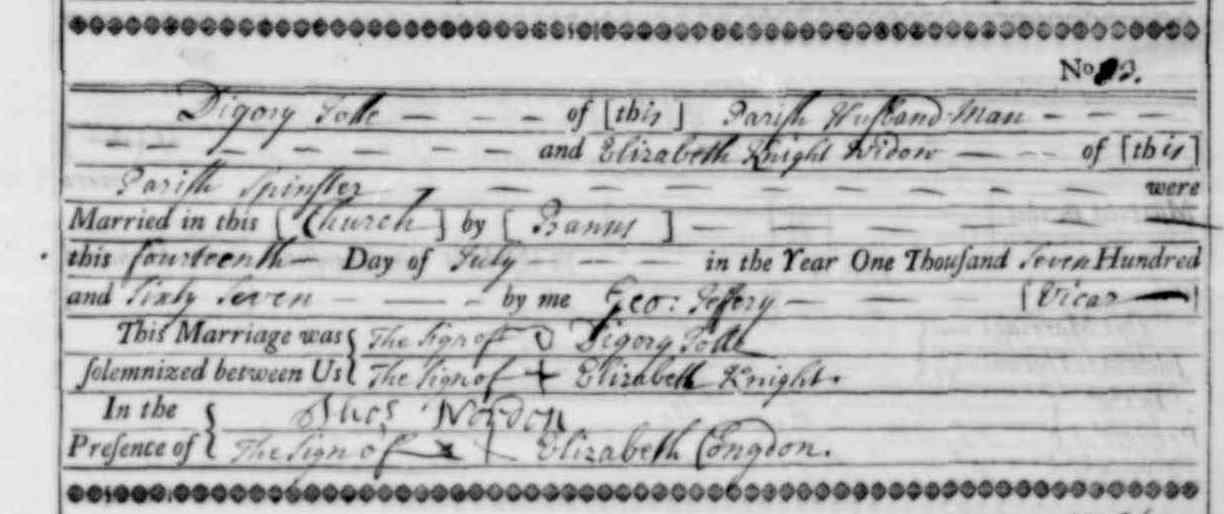 No 83.
Digory Jolle — — — of [this] Parish Husband-Man — — —
— — — — — — and Elizabeth Knight Widow — — of [this]
Parish Spinster — — — — — — — — were
Married in this [Church] by [Banns] — — — — — —
this fourteenth — Day of July — — — in the Year One Thousand Seven Hundred
and Sixty Seven — — - by me Geo: Jeffery — — [Vicar —]
This Marriage was { The Sign of O Digory Jolle
solemnized between Us { The Sign of + Elizabeth Knight.
In the { Thos Nordon
Presence of { The Sign of × Elizabeth Congdon.